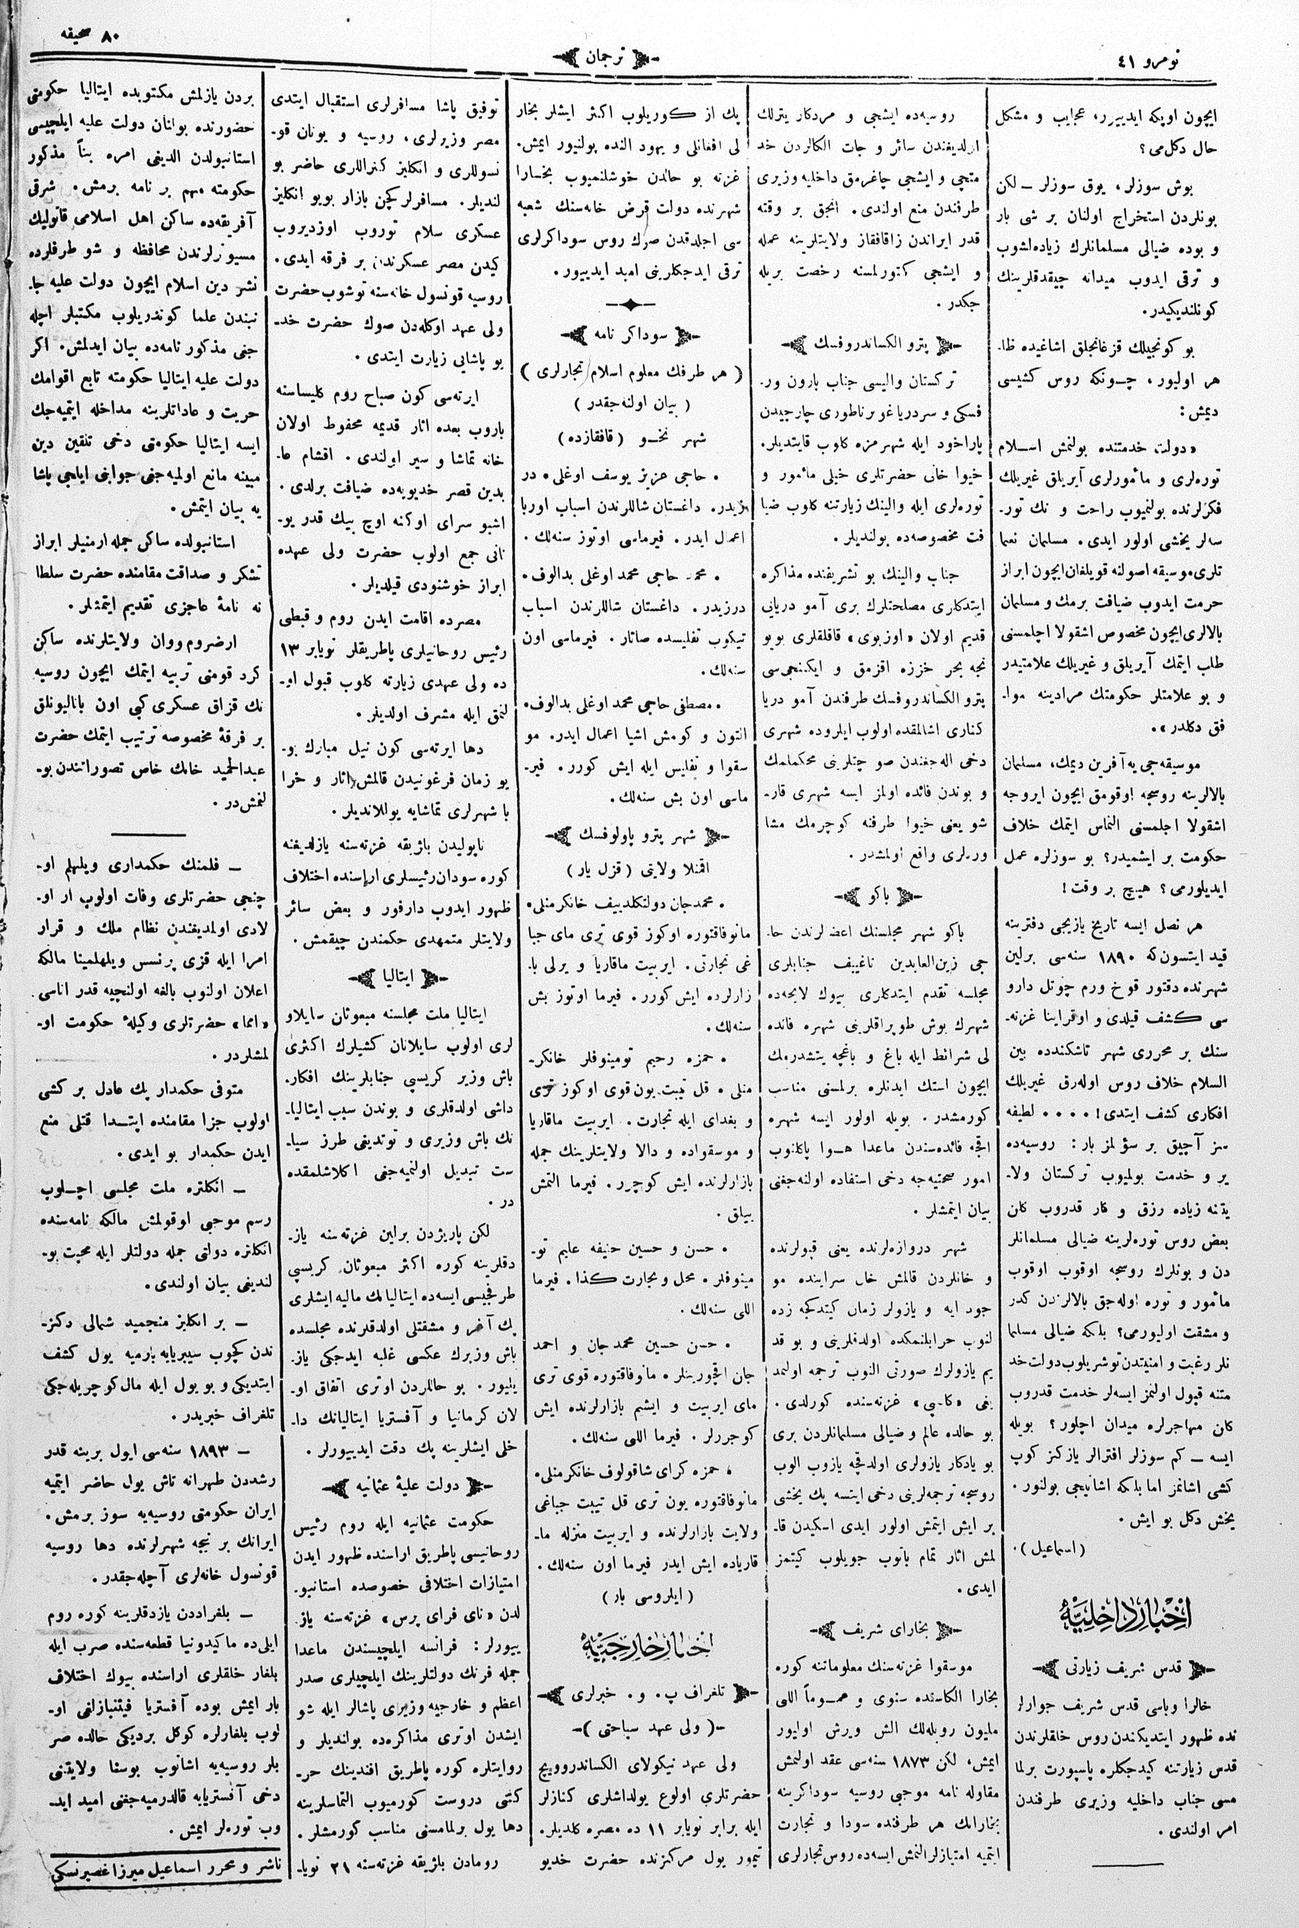 نومرو ٤١
ترجمان
٨٠ صحيفه
ايچون اوپكه ايديپرر، عجايب و مشكل
حال دكل‌می؟
بوش سوزلر، يوق سوزلر ــ لكن
بونلردن استخراج اولنان بر شی بار
و بوده ضيالی مسلمانلرك زياده‌لشوب
و ترقی ايدوب ميدانه چيقدقلرينك
كونلنديكيدر.
بو كونجيلك قزغانجلق اشاغيده ظا‌ـ
هر اوليور، چـونكه روس كشيسی
ديمش:
«دولت خدمتنده بولنمش اسـلام
توره‌لری و مأمورلری آيريلق غيريلك
فكرلرنده بولنميوب راحت و نك تور‌ـ
سه‌لر يخشی اولور ايدی. مسلمان نغما
تلری‌موسيقه اصولنه قويلغان‌ايچون ابراز
حرمت ايدوب ضيافت برمك و مسلمان
بالالری‌ايچون مخصوص اشقولا اچلمسنی
طلب ايتمك آيريلق و غيريلك علامتيدر
و بو علامتلر حكومتك مرادينه موا‌ـ
فق دكلدر».
موسيقه‌جی‌يه آفرين ديمك، مسلمان
بالالرينه روسجه اوقومق ايچون ايروجه
اشقولا اچلمسنی التماس ايتمك خلاف
حكومت بر ايشميدر؟ بو سوزلره عمل
ايديلورمی؟ هيچ بر وقت!
هر نصل ايسه تاريخ يازيجی دفترينه
قيد ايتسون‌كه ١٨٩٠ سنه‌سی برلين
شهرنده دقتور قوخ ورم چوتل دارو
سی كشف قيلدی و اوقراينا غزته‌ـ
سنك بر محرری شهر تاشكندده بين
السلام خلاف روس اوله‌رق غيريلك
افكاری كشف ايتدی! .... لطيفه
سز آچيق بر سؤلمز بار: روسيه‌ده
ير و خدمت بولميوب تركستان ولا‌ـ
يتنه زياده رزق و قار قدروب كان
بعض روس توره‌لرينه ضيالی مسلمانلر
دن و بونلرك روسجه اوقوب اوقوب
مأمور و توره اوله‌جق بالالرندن كدر
و مشقت اوليورمی؟ بلكه ضيالی مسلما
نلر رغبت و امنيتدن توشريلوب دولت خد
متنه قبول اولنمز ايسه‌لر خدمت قدروب
كان مهاجرلره ميدان اچلور؟ بويله
ايسه ــ كم سوزلر افترالر يازكنز كوپ
كشی اشانمز اما بلكه اشانيجی بولنور.
يخش دكل بو ايش.
(اسماعيل).
اخبار داخليه
قدس شريف زيارتی
خالرا وباسی قدس شريف جوارلر
نده ظهور ايتديكندن روس خلقلرندن
قدس زيارتنه كيدجكلره پاسپورت برلما
مسی جناب داخليه وزيری طرفندن
امر اولندی.
روسيه‌ده ايشجی و مردكار يترلك
اولديغندن سائر و جات الكالردن خد
متجی و ايشجی چاغرمق داخليه وزيری
طرفندن منع اولندی. انجق بر وقته
قدر ايراندن زاقافقاز ولايتلرينه عمله
و ايشجی كتورلمسنه رخصت بريله
جكدر.
پترو الكساندروفسك
تركستان واليسی جناب بارون ور‌ـ
فسكی و سردريا غوبرناطوری چارجيدن
پاراخود ايله شهرمزه كلوب قايتديلر.
خيوا خانی حضرتلری خيلی مأمور و
توره‌لری ايله والينك زيارتنه كلوب ضيا
فت مخصوصه‌ده بولنديلر.
جناب والينك بو تشريفنده مذاكره
ايتدكلری مصلحتلرك بری آمو دريانی
قديم اولان «اوزبوی» قاقلقلری بويو
نجه بحر خزره اقزمق و ايكنجی‌سی
پترو الكساندروفسك طرفندن آمو دريا
كناری اشالمقده اولوب ايلروده شهری
دخی اله‌جغندن صو چتلرينی محكملمك
و بوندن فائده اولمز ايسه شهری قار‌ـ
شو يعنی خيوا طرفنه كوچرمك مشا
ورلری واقع اولمشدر.
باكو
باكو شهر مجلسنك اعضالرندن حا‌ـ
جی زين‌العابدين تاغييف جنابلری
مجلسه تقدم ايتدكلری بيوك لايحه‌ده
شهرك بوش طوپراقلرينی شهره فائده
لی شرائط ايله باغ و باغچه يتشدرمك
ايچون استك ايدنلره برلمسنی مناسب
كورمشدر. بويله اولور ايسه شهره
اقچه فائده‌سندن ماعدا هـوا پاكلنوب
امور صحتيه‌جه دخی استفاده اولنه‌جغنی
بيان ايتمشلر.
شهر دروازه‌لرنده يعنی قپولرنده
و خانلردن قالمش خان سراينده مو
جود ايه و يازولر زمان كيتدكجه زده
لنوب خرابلنمكده اولدقلرينی و بو قد
يم يازولرك صورتی النوب ترجمه اولنمد
يغی «كاسپی» غزته‌سنده كورلدی.
بو حالده عالم و ضيالی مسلمانلردن بری
بو يادكار يازولری اولدقچه يازوب الوب
روسجه ترجمه‌لرينی دخی ايتسه پك يخشی
بر ايش ايتمش اولور ايدی اسكيدن قا‌ـ
لمش اثار تمام ياتوب جويلوب كيتمز
ايدی.
بخارای شريف
موسقوا غزته‌سنك معلوماتنه كوره
بخارا الكاسنده سنوی و عمـوماً اللی
مليون روبله‌لك الش ويرش اوليور
ايمش، لكن ١٨٧٣ سنه‌سی عقد اولنمش
مقاوله نامه موجبی روسيه سوداكرينه
بخارانك هر طرفنده سودا و تجارت
ايتميه امتيازلر النمش ايسه‌ده روس تجارلری
پك از كوريلوب اكثر ايشلر بخار
لی افغانلی و يهود النده بولنيور ايمش.
غزته بو حالدن خوشلنميوب بخـارا
شهرنده دولت قرض خانه‌سنك شعبه
سی اچلدقدن صرك روس سوداكرلری
ترقی ايدجكلرينی اميد ايدييور.
سوداكر نامه
(هر طرفك معلوم اسلام تجارلری)
(بيان اولنه‌جقدر)
شهر نخـو (قافقازده)
حاجی عزيز يوسف اوغلی در
زيدر. داغستان شاللرندن اسباب اوربا
اعمال ايدر. فيرماسی اوتوز سنه‌لك.
محمد حاجی محمد اوغلی بدالوف
درزيدر. داغستان شاللرندن اسباب
تيكوب تفليسده صاتار. فيرماسی اون
سنه‌لك.
مصطفی حاجی محمد اوغلی بدالوف
التون و كومش اشيا اعمال ايدر. مو
سقوا و تفليس ايله ايش كورر. فير‌ـ
ماسی اون بش سنه‌لك.
شهر پترو پاولوفسك
اقمنلا ولايتی (قزل يار)
محمدجان دولتكلدييف خانكرمنلی
مانوفاقتوره اوكوز قوی تری مای جبا
غی تجارتی. ايربيت ماقاريا و يرلی با‌ـ
زارلرده ايش كورر. فيرما اوتوز بش
سنه‌لك.
حمزه رحيم تومينوفلر خانكر‌ـ
منلی قل تيبت يون قوی اوكوز تری
و بغدای ايله تجارت. ايربيت ماقاريا
و موسقواده و دالا ولايتلرينك جمله
بازارلرنده ايش كوچرر. فيرما التمش
ييلق.
حسن و حسين حنيفه عليم تو‌ـ
مينوفلر. محل و تجارت كذا. فيرما
اللی سنه‌لك.
حسن حسين محمدجان و احمد
جان اقچورينلر. مانوفاقتوره قوی تری
مای ايربيت و ايشيم بازارلرنده ايش
كوجررلر. فيرما اللی سنه‌لك.
حمزه كرای شاقولوف خانكرمنلی
مانوفاقتوره يون تری قل تيبت جباغی
ولايت بازارلرنده و ايربيت منزله ما‌ـ
قارياده ايش ايدر فيرما اون سنه‌لك.
(ايلروسی بار)
اخبار خارجيه
تلغراف پ. و. خبرلری
(ولی عهد سياحتی)
ولی عهد نيكولای الكساندروويچ
حضرتلری اولوغ يولداشلری كنازلر
ايله برابر نويابر ١١ ده مصره كلديلر.
تيمور يول مركزنده حضرت خديو
توفيق پاشا مسافرلری استقبال ايتدی
مصر وزيرلری، روسيه و يونان قو‌ـ
نسوللری و انكليز كنرالری حاضر بو
لنديلر. مسافرلر كچن بازار بويو انكليز
عسكری سلام توروب اوزديروب
كيدن مصر عسكرندن بر فرقه ايدی.
روسيه قونسول خانه‌سنه توشوب حضرت
ولی عهد اوكله‌دن صوك حضرت خد‌ـ
يو پاشايی زيارت ايتدی.
ايرته‌سی كون صباح روم كليساسنه
باروب بعده اثار قديمه محفوظ اولان
خانه تماشا و سير اولندی. اقشام عا‌ـ
بدين قصر خديويه‌ده ضيافت برلدی.
اشبو سرای اوكنه اوچ بيك قدر يو‌ـ
نانی جمع اولوب حضرت ولی عهده
ابراز خوشنودی قيلديلر.
مصرده اقامت ايدن روم و قبطی
رئيس روحانيلری پاطريقلر نويابر ١٣
ده ولی عهدی زيارته كلوب قبول او‌ـ
لنمق ايله مشرف اولديلر.
دها ايرته‌سی كون نيل مبارك بو‌ـ
يو زمان فرغونيدن قالمش اثار و خرا
با شهرلری تماشايه يوللانديلر.
ناپوليدن باژيقه غزته‌سنه يازلديغنه
كوره سودان رئيسلری اراسنده اختلاف
ظهور ايدوب دارفور و بعض سائر
ولايتلر متمهدی حكمندن چيقمش.
ايتاليا
ايتاليا ملت مجلسنه مبعوثان سايلاو
لری اولوب سايلانان كشيلرك اكثری
باش وزير كريسپی جنابلرينك افكار‌ـ
داشی اولدقلری و بوندن سبب ايتاليا‌ـ
نك باش وزيری و توتديغی طرز سيا‌ـ
ست تبديل اولنميه‌جغی اكلاشلمقده
در.
لكن پاريژدن براين غزته‌سنه ياز‌ـ
دقلرينه كوره اكثر مبعوثان كريسپی
طرفجيسی ايسه‌ده ايتاليانك ماليه ايشلری
پك آغر و مشقتلی اولدقلرنده مجلسده
باش وزيرك عكسی غلبه ايدجكی ياز‌ـ
يليور. بو حاللردن اوتری اتفاق او‌ـ
لان كرمانيا و آفستريا ايتاليانك دا‌ـ
خلی ايشلرينه پك دقت ايدييورلر.
دولت عليهٔ عثمانيه
حكومت عثمانيه ايله روم رئيس
روحانيسی پاطريق اراسنده ظهور ايدن
امتيازات اختلافی خصوصده استانبو‌ـ
لدن «نای فرای پرس» غزته‌سنه ياز‌ـ
ييورلر: فرانسه ايلچيسندن ماعدا
جمله فرنك دولتلرينك ايلچيلری صدر
اعظم و خارجيه وزيری پاشالر ايله شو
ايشدن اوتری مذاكره‌ده بولنديلر و
روايتلره كوره پاطريق افندينك حر‌ـ
كتی دروست كورميوب التماسلرينه
دها يول برلمامسنی مناسب كورمشلر.
رومادن باژيقه غزته‌سنه ٢١ نويا‌ـ
بردن يازلمش مكتوبده ايتاليا حكومتی
حضورنده بولنان دولت عليه ايلچيسی
استانبولدن الديغی امره بناً مذكور
حكومته مهم بر نامه برمش. شرقی
آفريقه‌ده ساكن اهل اسلامی قاتوليك
مسيونرلرندن محافظه و شو طرفلرده
نشر دين اسلام ايچون دولت عليه جا‌ـ
نبندن علما كوندريلوب مكتبلر اچله
جغی مذكور نامه‌ده بيان ايدلمش. اكر
دولت عليه ايتاليا حكومته تابع اقوامك
حريت و عاداتلرينه مداخله ايتميه‌جك
ايسه ايتاليا حكومتی دخی تلقين دين
مبينه مانع اولميه‌جغی جوابنی ايلچی پاشا
يه بيان ايتمش.
استانبولده ساكن جمله ارمنيلر ابراز
تشكر و صداقت مقامنده حضرت سلطا
نه نامهٔ عاجزی تقديم ايتمشلر.
ارضروم ووان ولايتلرنده ساكن
كرد قومنی تربيه ايتمك ايچون روسيه
نك قزاق عسكری كبی اون باتاليونلق
بر فرقهٔ مخصوصه ترتيب ايتمك حضرت
عبدالحميد خانك خاص تصوراتندن بو‌ـ
لنمش‌در.
ــ فلمنك حكمداری ويلهلم او‌ـ
چنجی حضرتلری وفات اولوب ار او‌ـ
لادی اولمديغندن نظام ملك و قرار
امرا ايله قزی پرنسس ويلهلمينا مالكه
اعلان اولنوب بالغه اولنچيه قدر اناسی
«اما» حضرتلری وكيلهٔ حكومت او‌ـ
لمشلردر.
متوفی حكمدار پك عادل بر كشی
اولوب جزا مقامنده ابتـدا قتلی منع
ايدن حكمدار بو ايدی.
ــ انكلتره ملت مجلسی اچـلوب
رسم موجبی اوقولمش مالكه نامه‌سنده
انكلتره دولتی جمله دولتلر ايله محبت بو‌ـ
لنديغی بيان اولندی.
ــ بر انكليز منجميد شمالی دكز‌ـ
ندن كچوب سيبريايه بارميه يول كشف
ايتديكی و بو يول ايله مال كوچريله‌جكی
تلغراف خبريدر.
ــ ١٨٩٣ سنه‌سی ايول برينه قدر
رشددن طهرانه تاش يول حاضر ايتميه
ايران حكومتی روسيه‌يه سوز برمش.
ايرانك بر نيجه شهرلرنده دها روسيه
قونسول خانه‌لری آچله‌جقدر.
ــ بلغراددن يازدقلرينه كوره روم
ايلی‌ده ماكيدونيا قطعه‌سنده صرب ايله
بلغار خلقلری اراسنده بيوك اختلاف
بار ايمش بوده آفستريا فيتنيازلغی او‌ـ
لوب بلغارلره كوكل برديكی حالده صر
بلر روسيه‌يه اشانوب بوسنا ولايتنی
دخی آفسترياده قالدرميه‌جغنی اميد ايد‌ـ
وب توره‌لر ايمش.
ناشر و محرر اسماعيل ميرزا غصپرنسكی